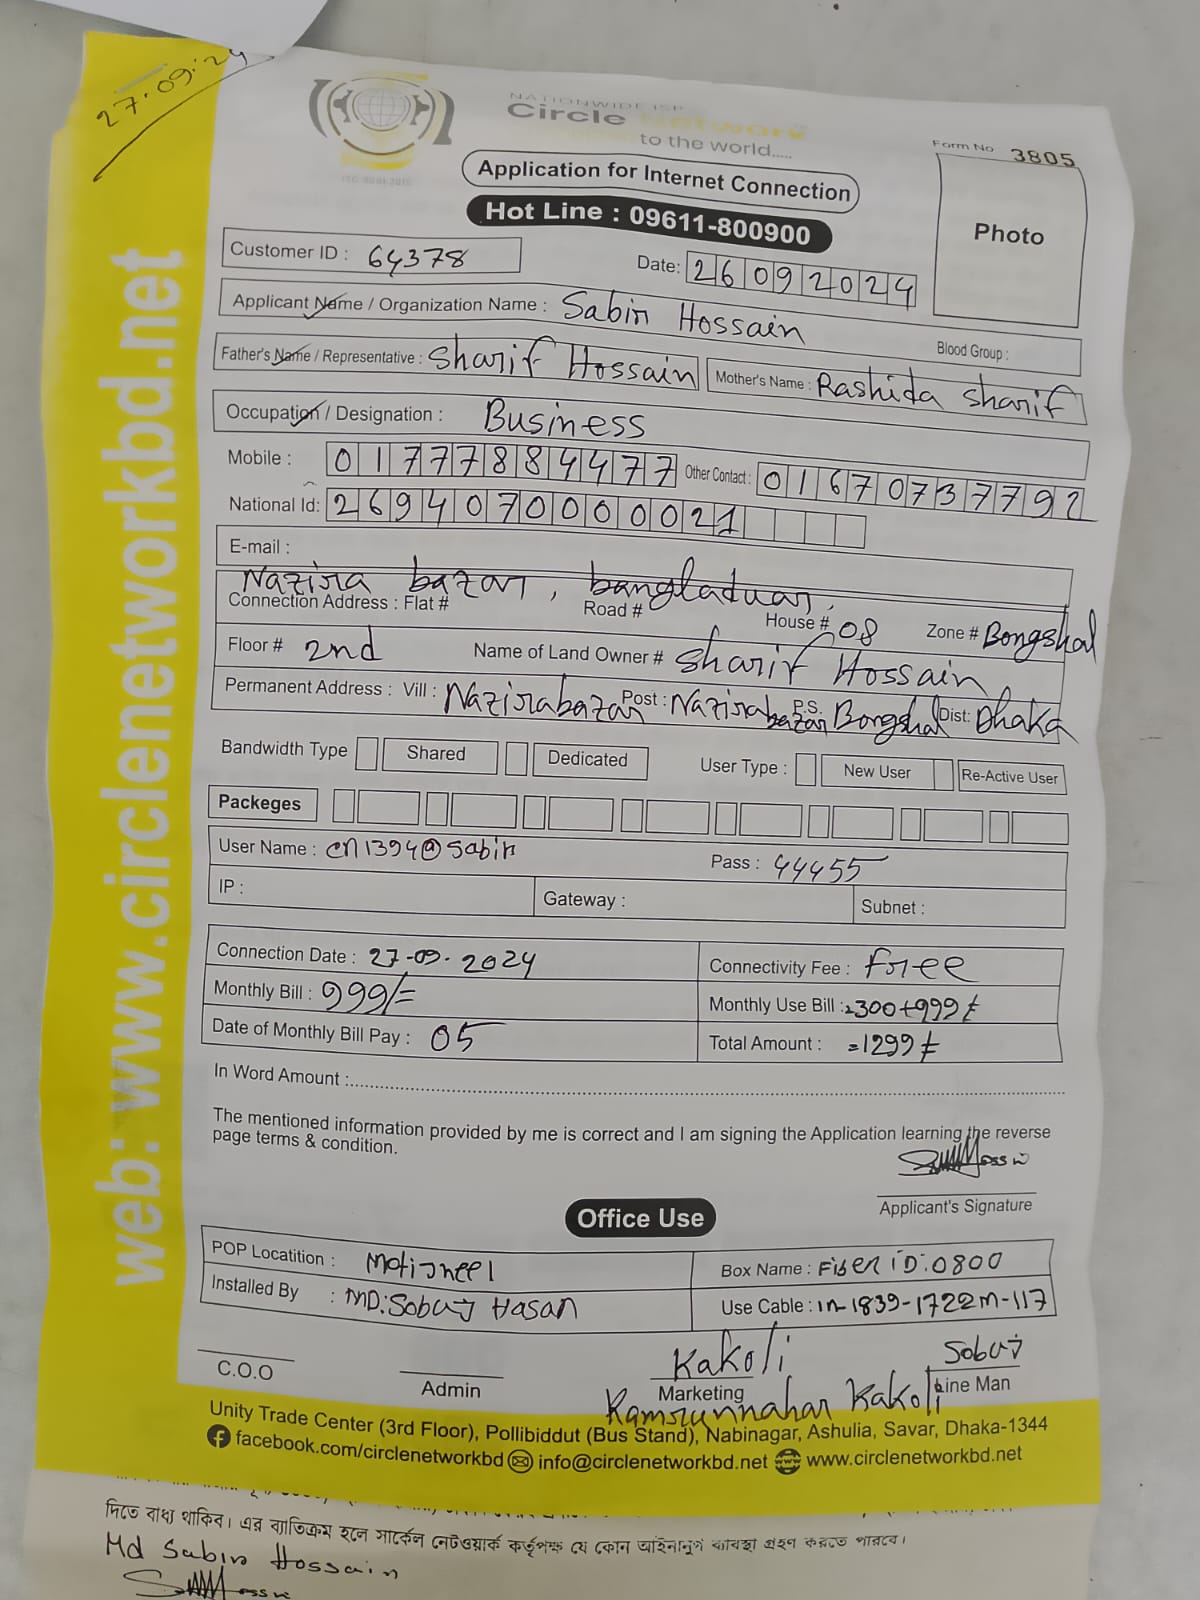 27.09.24
NATIONWIDE ISP
Circle Network
to the world.....
ISO 9001:2015
Form No 3805
Application for Internet Connection
Hot Line : 09611-800900
Photo
Customer ID : 64378
Date: 26092024
Applicant Name / Organization Name : Sabir Hossain
Blood Group :
Father's Name / Representative : Sharif Hossain Mother's Name : Rashida Sharif
Occupation / Designation : Business
Mobile : 01777884477 Other Contact : 01670737792
National Id: 2694070000021
E-mail :
Nazira bazar, bangladuar,
Connection Address : Flat # Road # House # 08 Zone # Bongshal
Floor # 2nd Name of Land Owner # Sharif Hossain
Permanent Address : Vill : Nazirabazar Post : Nazirabazar P.S. Bongshal Dist: Dhaka
Bandwidth Type Shared Dedicated User Type : New User Re-Active User
Packeges
User Name : cn1394@sabir Pass : 44455
IP : Gateway : Subnet :
Connection Date : 27-09-2024 Connectivity Fee : Free
Monthly Bill : 999/= Monthly Use Bill : =300+999/=
Date of Monthly Bill Pay : 05 Total Amount : =1299/=
In Word Amount :
The mentioned information provided by me is correct and I am signing the Application learning the reverse
page terms & condition.
Applicant's Signature
Office Use
POP Locatition : Motijheel Box Name : Fiber iD:0800
Installed By : MD:Sobuj Hasan Use Cable : in-1839-1722m-117
Kakoli Sobuj
C.O.O Admin Marketing Line Man
Kamrunnahar Kakoli
Unity Trade Center (3rd Floor), Pollibiddut (Bus Stand), Nabinagar, Ashulia, Savar, Dhaka-1344
facebook.com/circlenetworkbd info@circlenetworkbd.net www.circlenetworkbd.net
web: www.circlenetworkbd.net
দিতে বাধ্য থাকিব। এর ব্যতিক্রম হলে সার্কেল নেটওয়ার্ক কর্তৃপক্ষ যে কোন আইনানুগ ব্যবস্থা গ্রহণ করতে পারবে।
Md Sabir Hossain